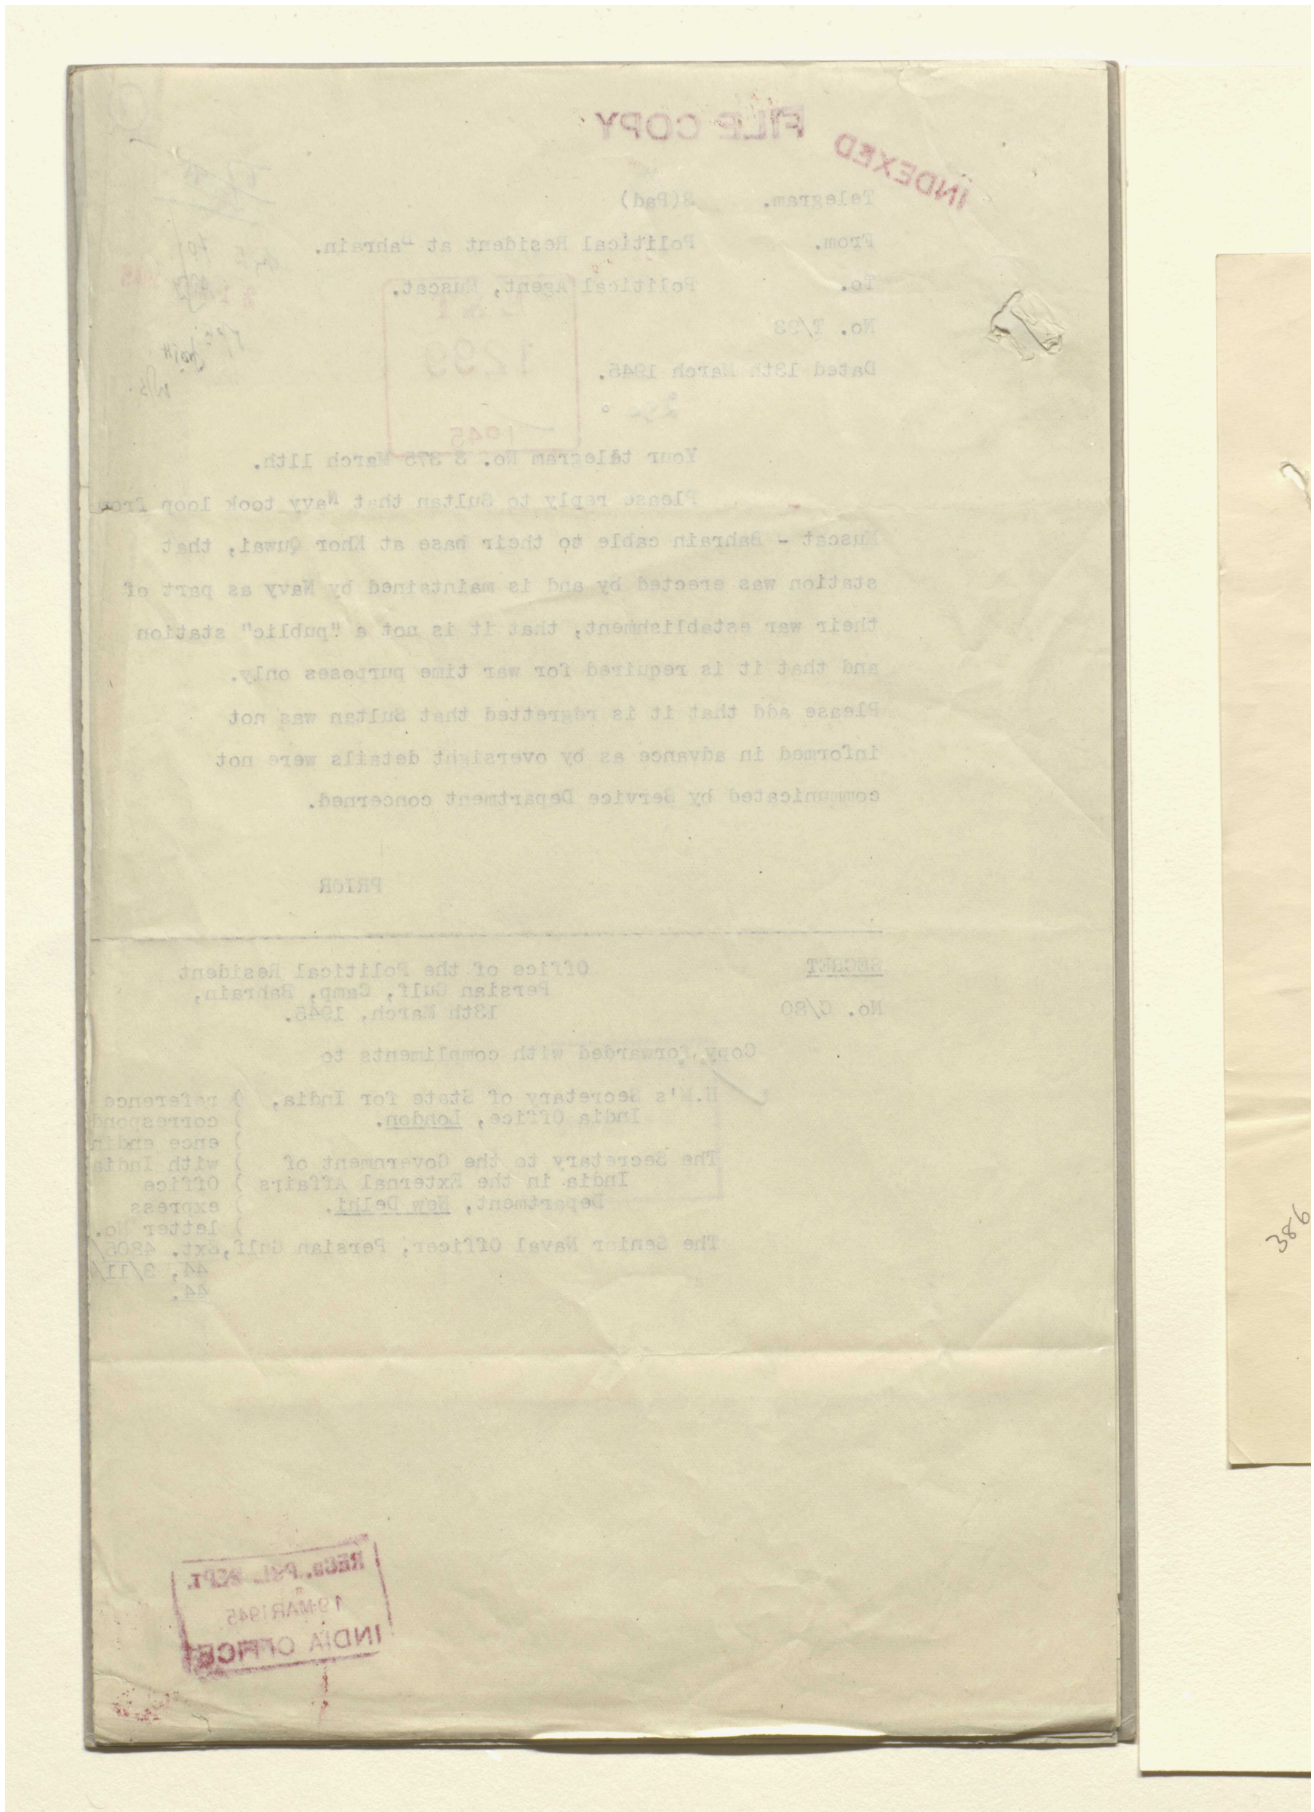 FILE COPY
INDEXED
Telegram. S(Pad)
From. Political Resident at Bahrain.
To. Political Agent, Muscat.
No. T/93
Dated 13th March 1945.
1299
1945
Your telegram No. S 375 March 11th.
Please reply to Sultan that Navy took loop from
Muscat - Bahrain cable to their base at Khor Quwai, that
station was erected by and is maintained by Navy as part of
their war establishment, that it is not a "public" station
and that it is required for war time purposes only.
Please add that it is regretted that Sultan was not
informed in advance as by oversight details were not
communicated by Service Department concerned.
PRIOR
SECRET Office of the Political Resident
Persian Gulf, Camp, Bahrain,
No. C/80 13th March, 1945.
Copy forwarded with compliments to
H.M's Secretary of State for India, ) reference
India Office, London. ) correspond
) ence endin
The Secretary to the Government of ) with India
India in the External Affairs ) Office
Department, New Delhi. ) express
) letter No.
The Senior Naval Officer, Persian Gulf, Ext. 4806/
44, 3/11/
44.
RECd. POL. DEPT.
19 MAR 1945
INDIA OFFICE
386